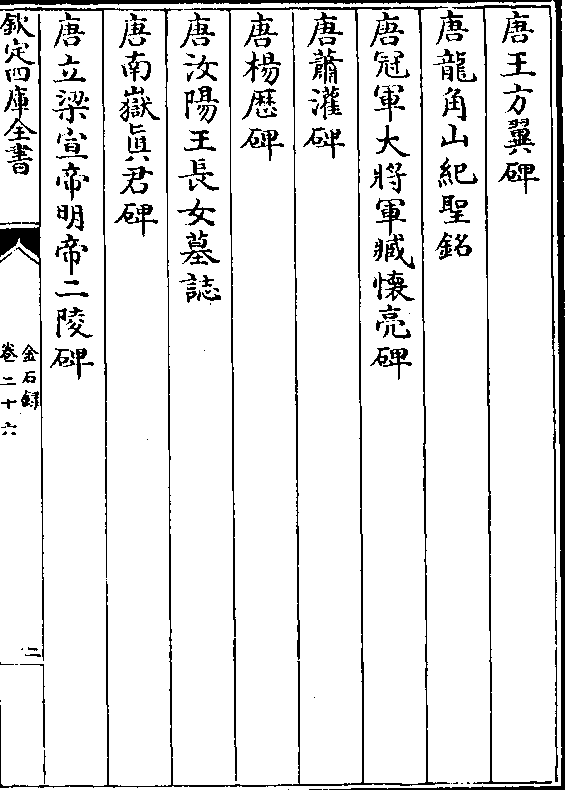 唐王方翼碑
唐龍角山紀聖銘
唐冠軍大將軍臧懷亮碑
唐蕭灌碑
唐楊歷碑
唐汝陽王長女墓誌
唐南嶽眞君碑
唐立梁宣帝明帝二陵碑
欽定四庫全書
金石錄
卷二十六
二